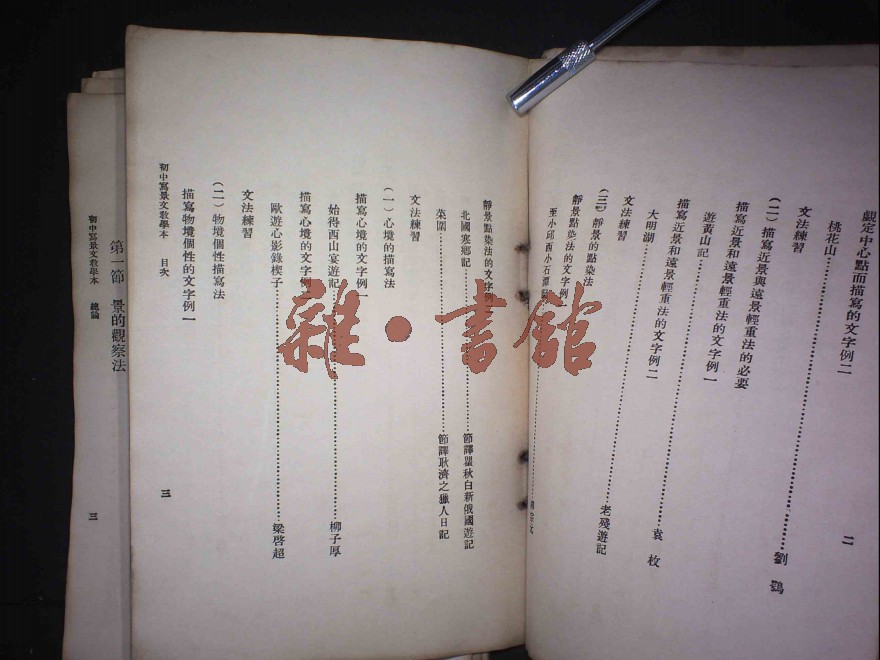 觀定中心點而描寫的文字例二
桃花山………劉鶚
文法練習
(二)描寫近景與遠景輕重法的必要
描寫近景和遠景輕重法的文字例一
遊黃山記………袁枚
描寫近景和遠景輕重法的文字例二
大明湖………老殘遊記
文法練習
(三)靜景的點染法
靜景點染法的文字例
至小邱西小石潭
二
靜景點染法的文字例
北國寒鄉記………節譯瞿秋白新俄國遊記
菜圃………節譯耿濟之獵人日記
文法練習
(一)心境的描寫法
描寫心境的文字例一
始得西山宴遊記………柳子厚
描寫心境的文字例
歐遊心影錄楔子………梁啓超
文法練習
(二)物境個性描寫法
描寫物境個性的文字例一
初中寫景文教學本 目次
三
第一節 景的觀察法
初中寫景文教學本 總論
三
雜·書館